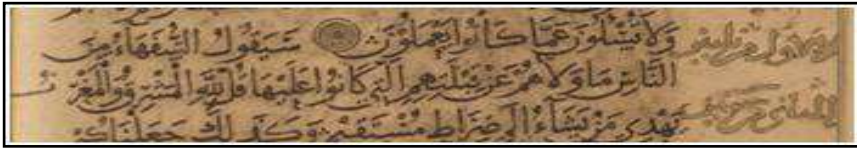 ولا تسئلون عما كانوا يعملون ۝ سيقول السفهاء من
الناس ما ولاهم عن قبلتهم التي كانوا عليها قل لله المشرق والمغرب
يهدي من يشاء الى صراط مستقيم وكذلك جعلناكم